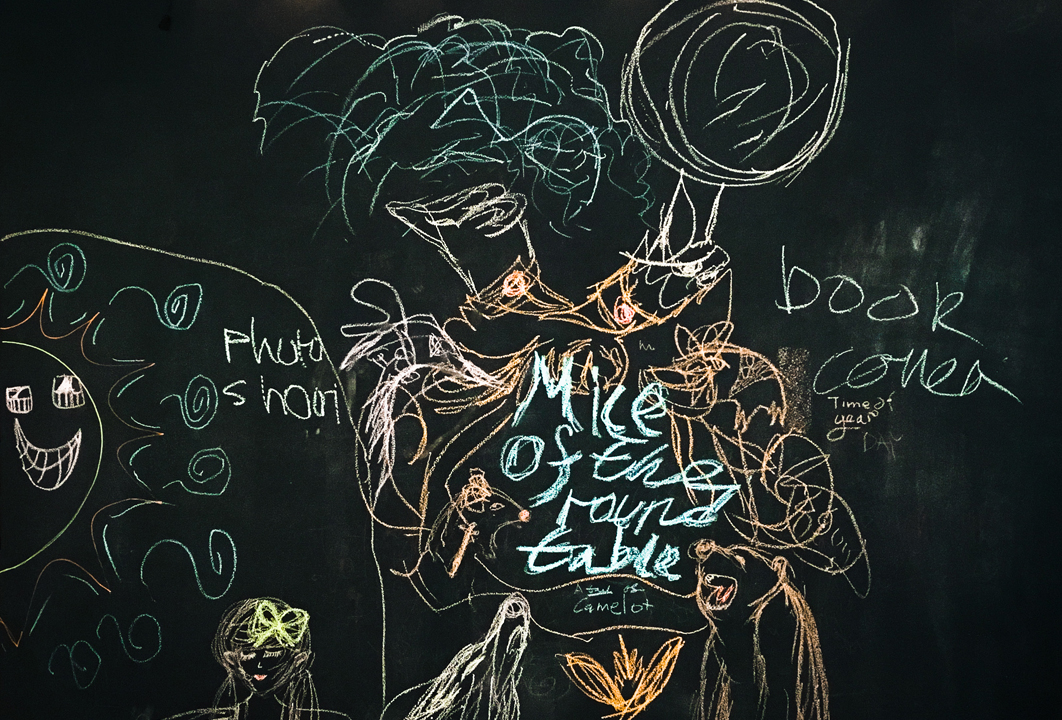 photo
shoot
book
corner
Time of
year
Mice
of the
round
table
A tail of
Camelot